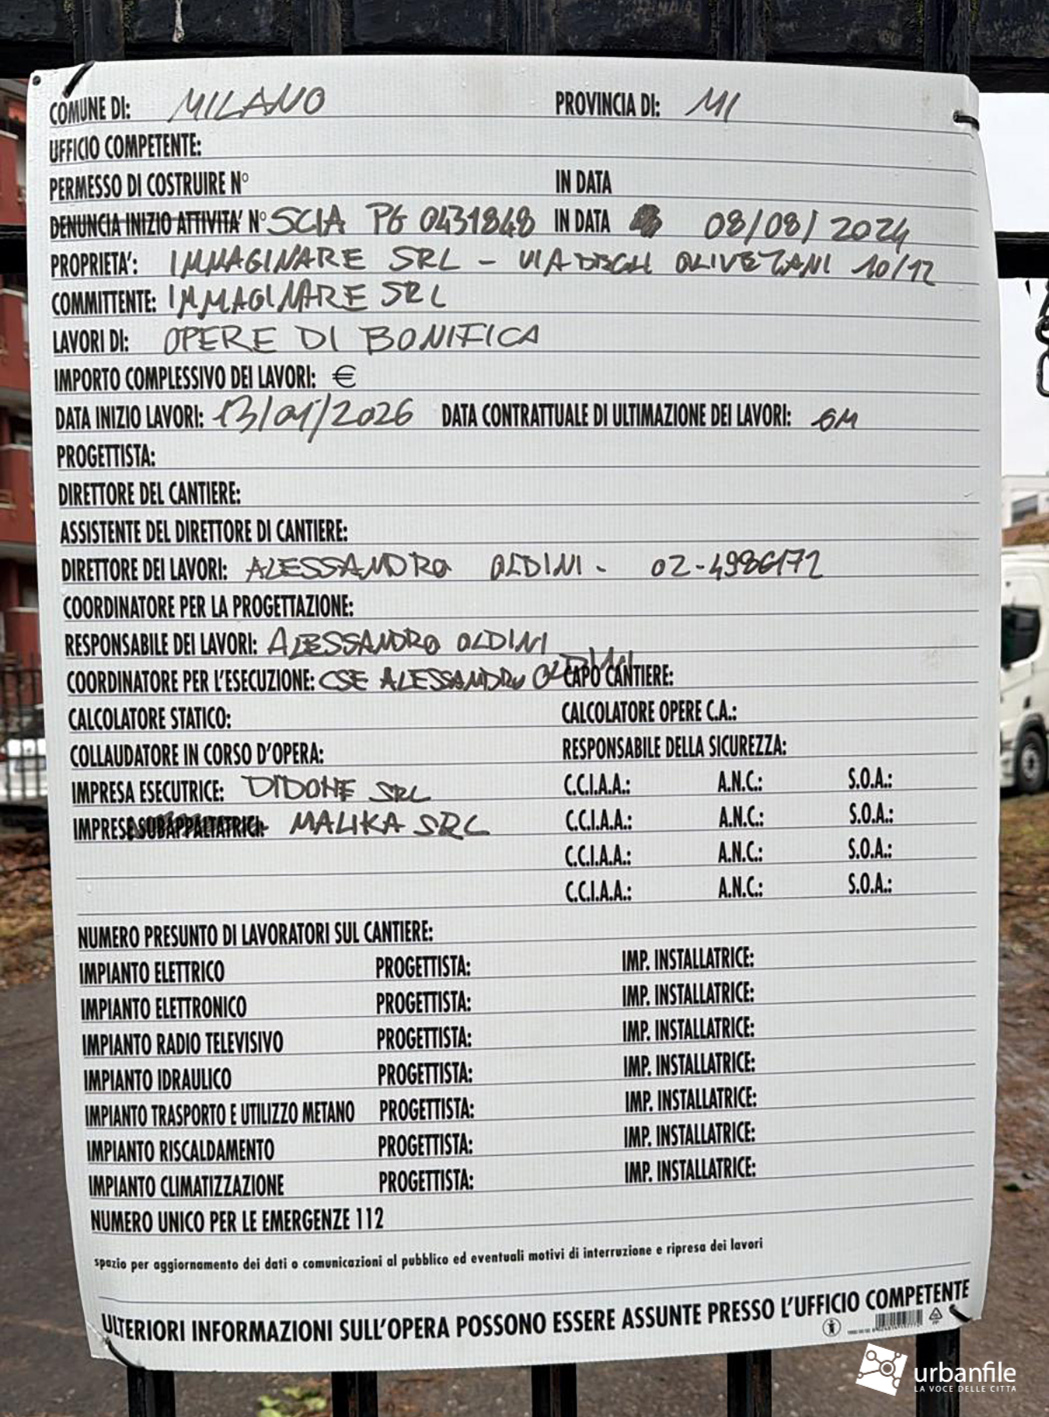 COMUNE DI: MILANO PROVINCIA DI: MI
UFFICIO COMPETENTE:
PERMESSO DI COSTRUIRE N° IN DATA
DENUNCIA INIZIO ATTIVITA' N° SCIA PG 0431848 IN DATA 08/08/2024
PROPRIETA': IMMAGINARE SRL - VIA DEGLI OLIVETANI 10/12
COMMITTENTE: IMMAGINARE SRL
LAVORI DI: OPERE DI BONIFICA
IMPORTO COMPLESSIVO DEI LAVORI: €
DATA INIZIO LAVORI: 13/01/2026 DATA CONTRATTUALE DI ULTIMAZIONE DEI LAVORI: 6M
PROGETTISTA:
DIRETTORE DEL CANTIERE:
ASSISTENTE DEL DIRETTORE DI CANTIERE:
DIRETTORE DEI LAVORI: ALESSANDRO OLDINI - 02-4986172
COORDINATORE PER LA PROGETTAZIONE:
RESPONSABILE DEI LAVORI: ALESSANDRO OLDINI
COORDINATORE PER L'ESECUZIONE: CSE ALESSANDRO OLDINI CAPO CANTIERE:
CALCOLATORE STATICO: CALCOLATORE OPERE C.A.:
COLLAUDATORE IN CORSO D'OPERA: RESPONSABILE DELLA SICUREZZA:
IMPRESA ESECUTRICE: DIDONE SRL C.C.I.A.A.: A.N.C.: S.O.A.:
IMPRESE SUBAPPALTATRICI: MALIKA SRL C.C.I.A.A.: A.N.C.: S.O.A.:
C.C.I.A.A.: A.N.C.: S.O.A.:
C.C.I.A.A.: A.N.C.: S.O.A.:
NUMERO PRESUNTO DI LAVORATORI SUL CANTIERE:
IMPIANTO ELETTRICO PROGETTISTA: IMP. INSTALLATRICE:
IMPIANTO ELETTRONICO PROGETTISTA: IMP. INSTALLATRICE:
IMPIANTO RADIO TELEVISIVO PROGETTISTA: IMP. INSTALLATRICE:
IMPIANTO IDRAULICO PROGETTISTA: IMP. INSTALLATRICE:
IMPIANTO TRASPORTO E UTILIZZO METANO PROGETTISTA: IMP. INSTALLATRICE:
IMPIANTO RISCALDAMENTO PROGETTISTA: IMP. INSTALLATRICE:
IMPIANTO CLIMATIZZAZIONE PROGETTISTA: IMP. INSTALLATRICE:
NUMERO UNICO PER LE EMERGENZE 112
spazio per aggiornamento dei dati o comunicazioni al pubblico ed eventuali motivi di interruzione e ripresa dei lavori
ULTERIORI INFORMAZIONI SULL'OPERA POSSONO ESSERE ASSUNTE PRESSO L'UFFICIO COMPETENTE
urbanfile
LA VOCE DELLE CITTÀ